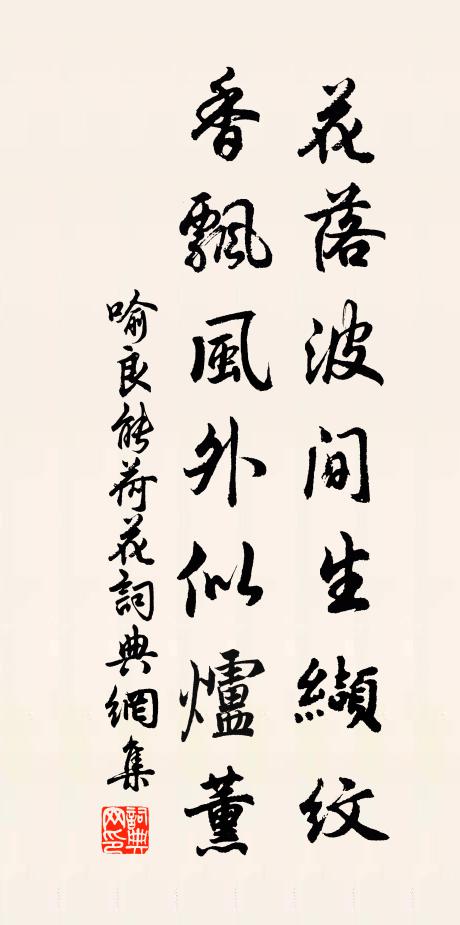 花落波间生纈紋
香飄風外似爐薰
喻良能荷花詞典網集
詞典網印